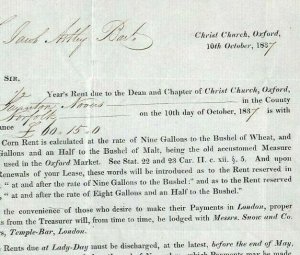 Christ Church, Oxford,
10th October, 1837
Sir Jacob Astley Bart
SIR,
Year's Rent due to the Dean and Chapter of Christ Church, Oxford,
in the County
Norfolk on the 10th day of October, 1837 is with
ance £60.15.0
Corn Rent is calculated at the rate of Nine Gallons to the Bushel of Wheat, and
Gallons and an Half to the Bushel of Malt, being the old accustomed Measure
used in the Oxford Market. See Stat. 22 and 23 Car. II. c. xii. §. 5. And upon
Renewals of your Lease, these words will be introduced as to the Rent reserved in
, "at and after the rate of Nine Gallons to the Bushel:" and as to the Rent reserved
, "at and after the rate of Eight Gallons and an Half to the Bushel."
the convenience of those who desire to make their Payments in London, proper
s from the Treasurer will, from time to time, be lodged with Messrs. Snow and Co.
rs, Temple-Bar, London.
Rents due at Lady-Day must be discharged, at the latest, before the end of May,